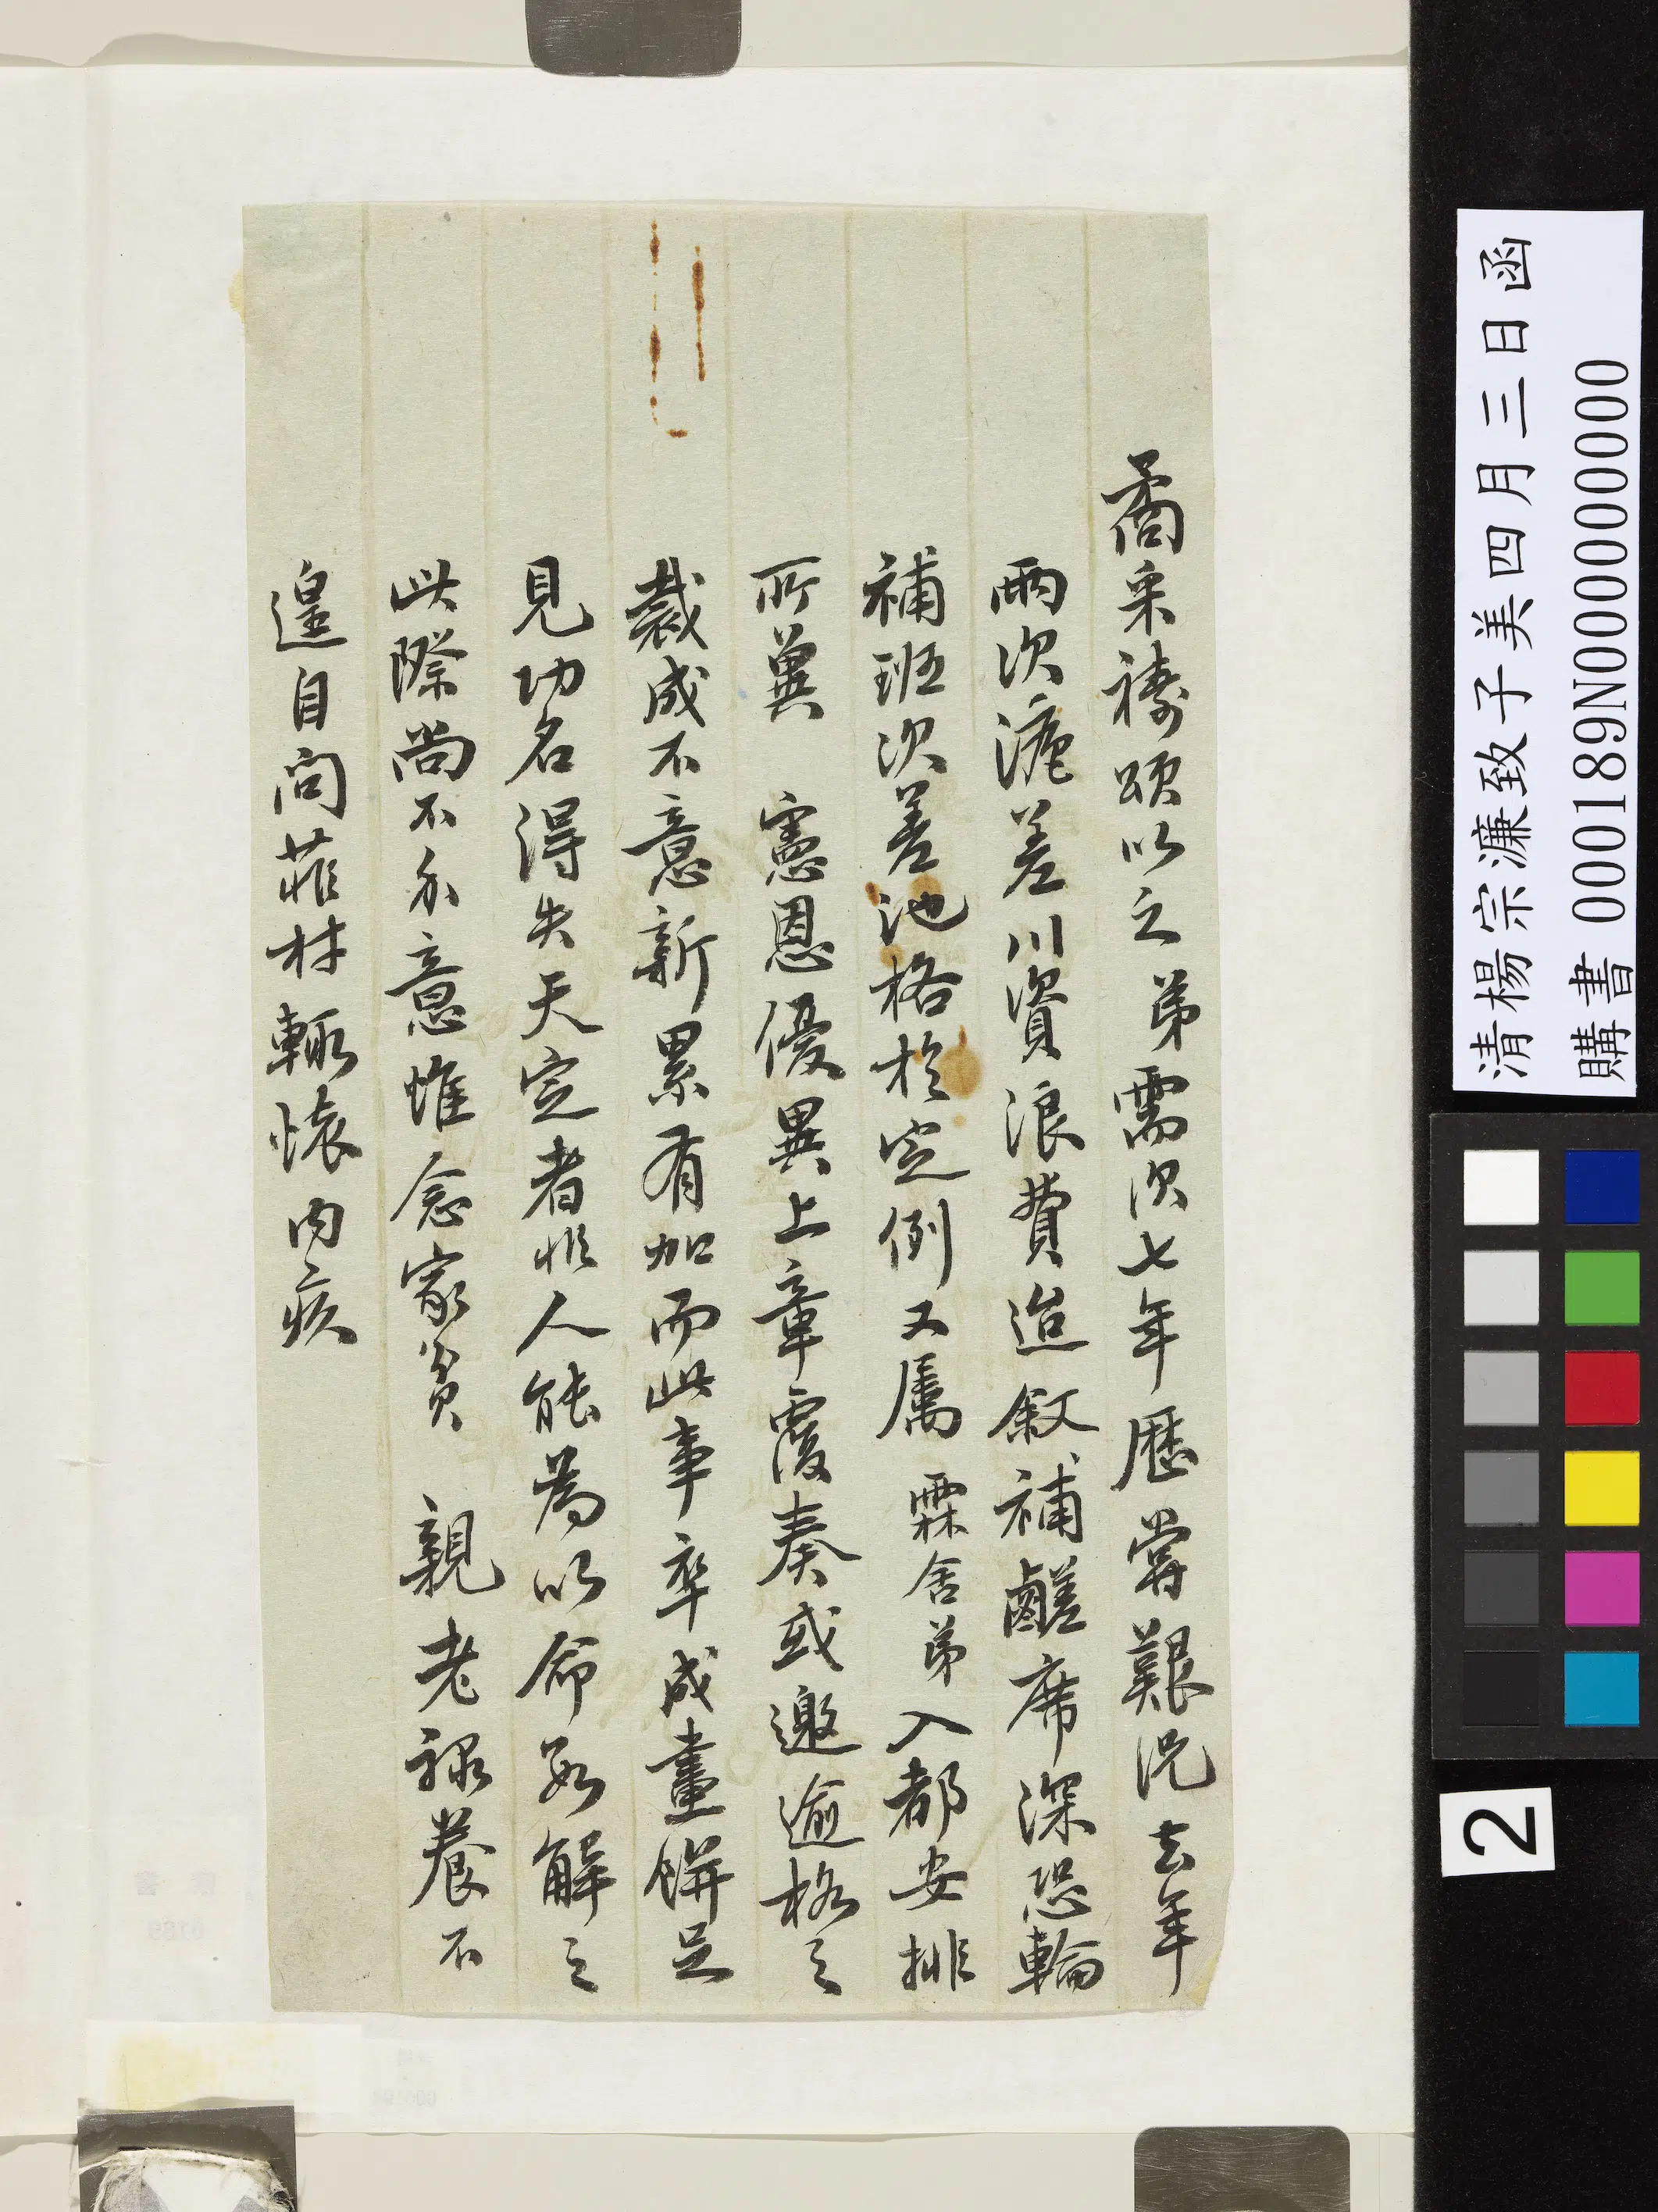 矞采禱頌以之弟需次七年歷嘗艱況去年
兩次滬差川資浪費迨敘補鹺席深恐輪
補班次差池格於定例又屬霖舍弟入都安排
所冀 憲恩優異上章覆奏或邀逾格之
裁成不意新累有加而此事卒成畫餅足
見功名得失天定者非人能為以命數解之
此際尚不介意惟念家貧 親老祿養不
遑自問菲材輒懷內疚
清楊宗濂致子美四月三日函
購書 000189N000000000
2